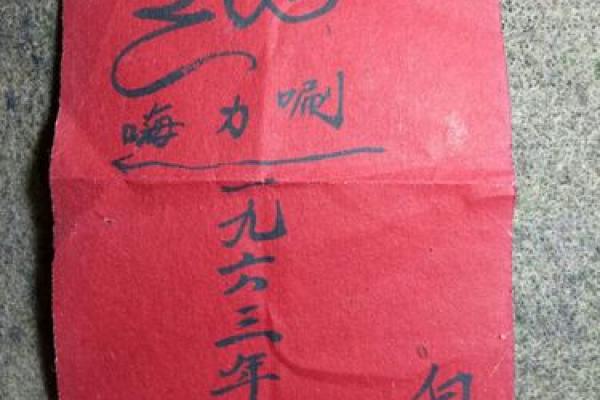 嗨力唰
一九六三年